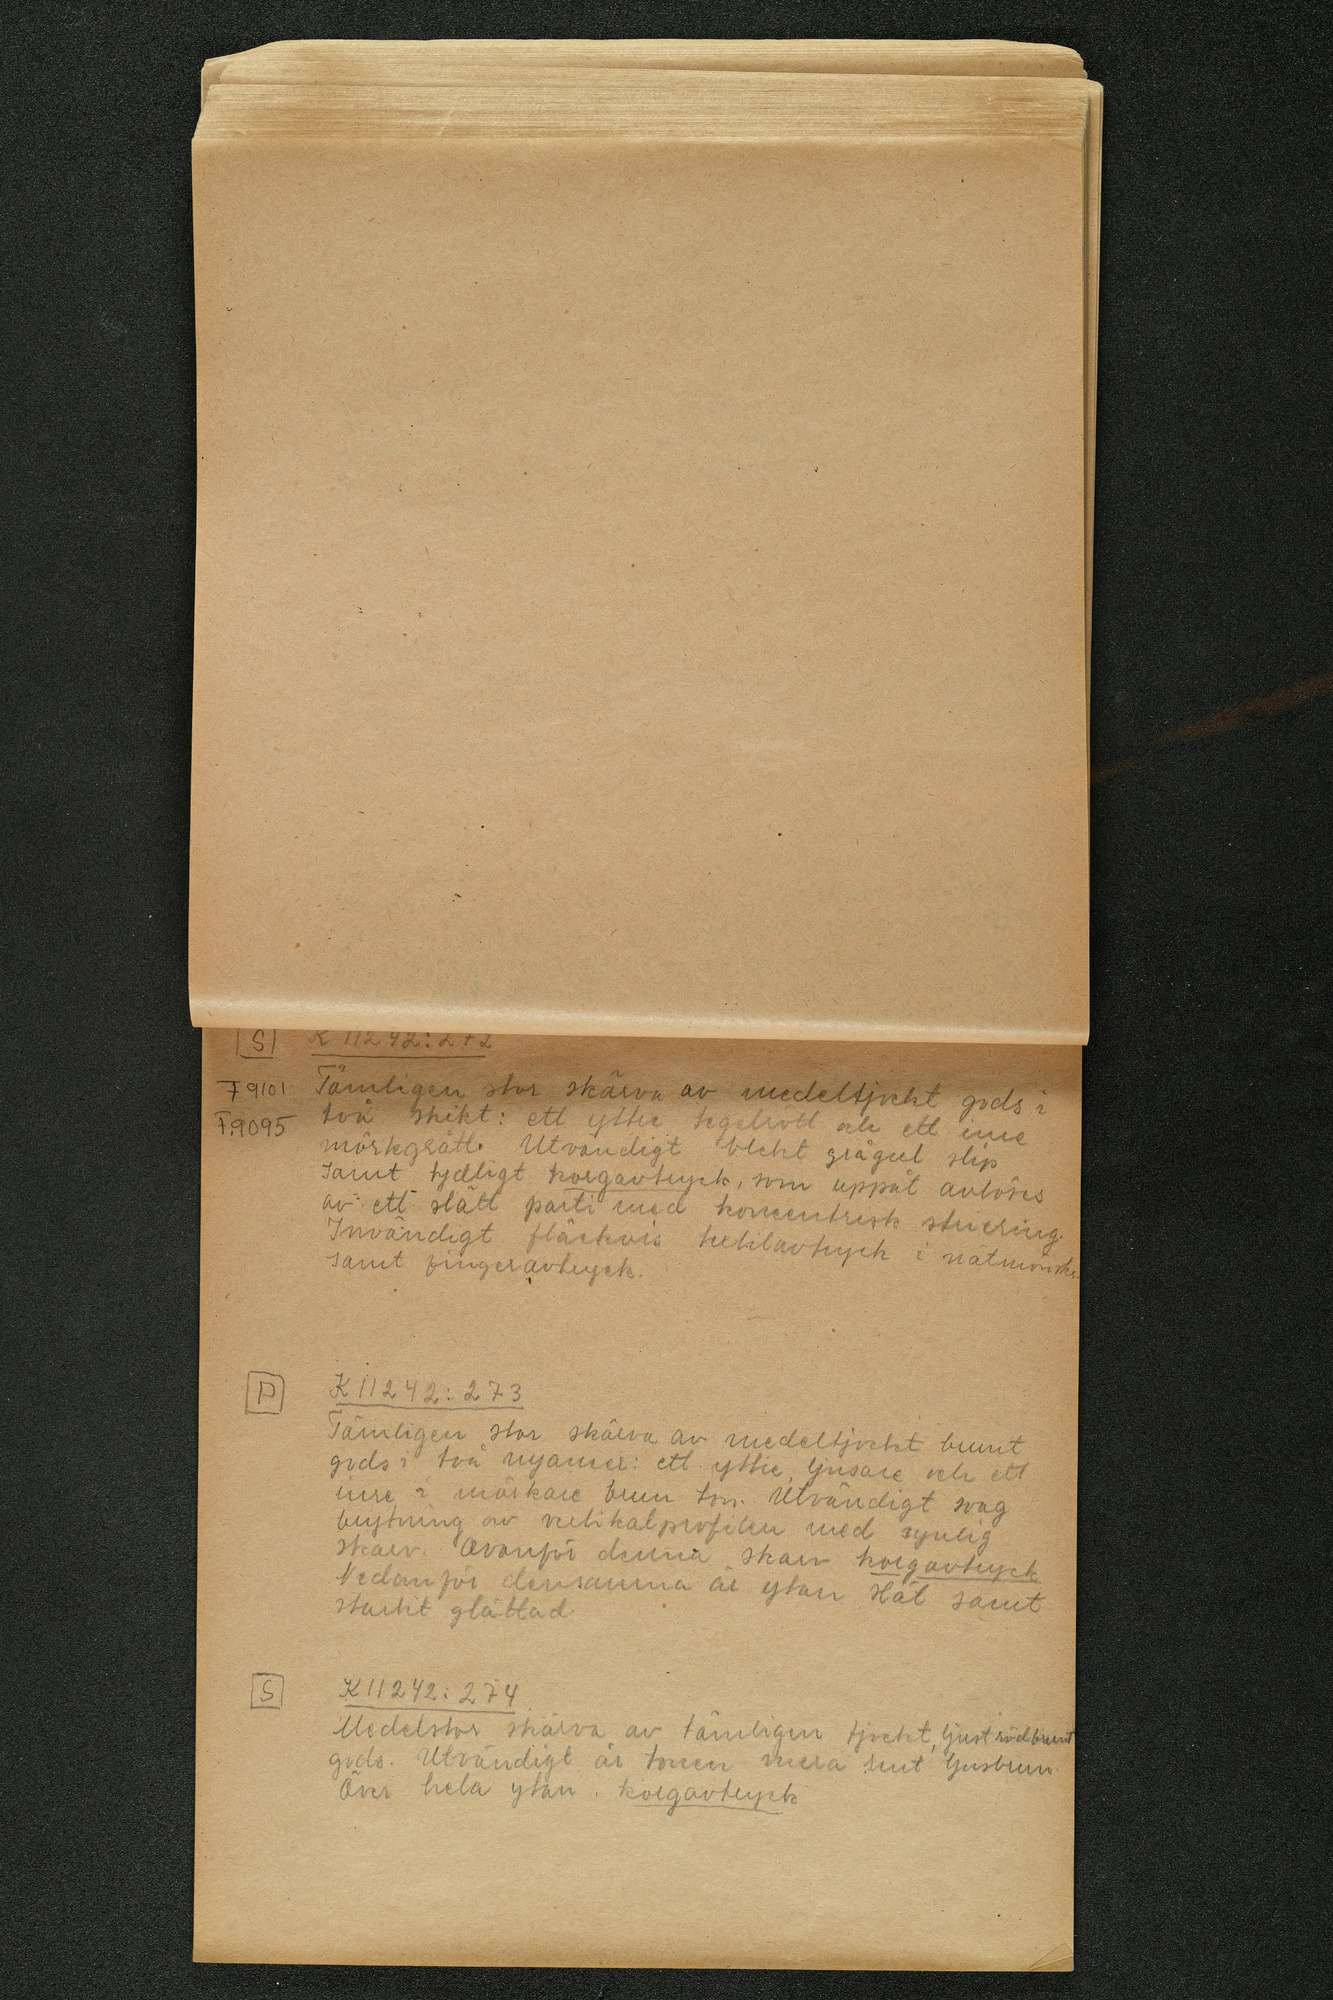 S K 11242:272
F 9101 Tämligen stor skärva av medeltjockt gods i
F.9095 två skikt: ett yttre tegelrött och ett inre
mörkgrått. Utvändigt blekt grågul slip
samt tydligt korgavtryck, som uppåt avlöses
av ett slätt parti med koncentrisk struering.
Invändigt fläckvis textilavtryck i nätmönster
samt fingeravtryck.
P K 11242:273
Tämligen stor skärva av medeltjockt brunt
gods i två nyanser: ett yttre, ljusare och ett
inre i mörkare brun ton. Utvändigt svag
brytning av vertikalprofilen med synlig
skarv. Ovanför denna skarv korgavtryck
Nedanför densamma är ytan slät samt
starkt glättad.
S K 11242:274
Medelstor skärva av tämligen tjockt, ljust rödbrunt
gods. Utvändigt är tonen mera rent ljusbrun.
Över hela ytan korgavtryck